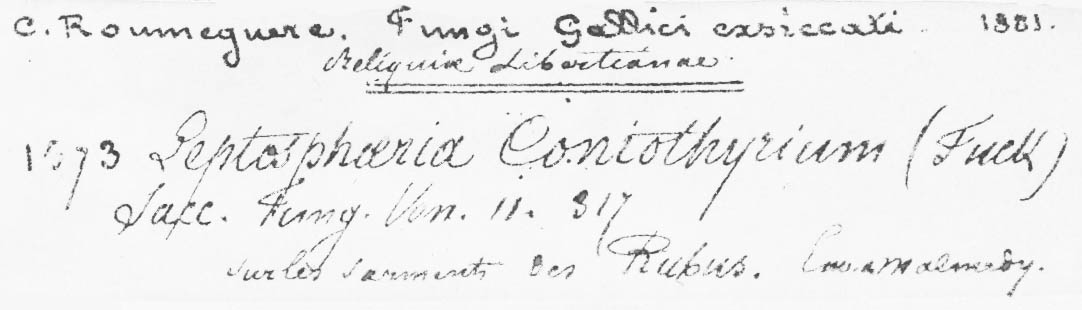 C. Roumeguere. Fungi Gallici exsiccati. 1881.
Reliquiæ Libertianae.
1573 Leptosphæria Coniothyrium (Fuck)
Sacc. Fung. Ven. II. 317
sur les sarments des Rubus. Malmedy.